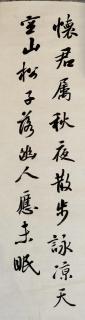 懷君屬秋夜散步詠涼天
空山松子落幽人應未眠